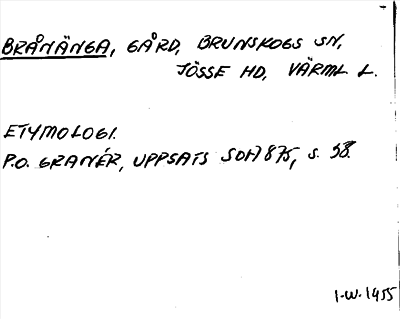 BRÅNÄNGA, GÅRD, BRUNSKOGS SN,
JÖSSE HD, VÄRML L.
ETYMOLOGI.
P.O. GRANÉR, UPPSATS SOH 875, S. 58.
I-W. 1455